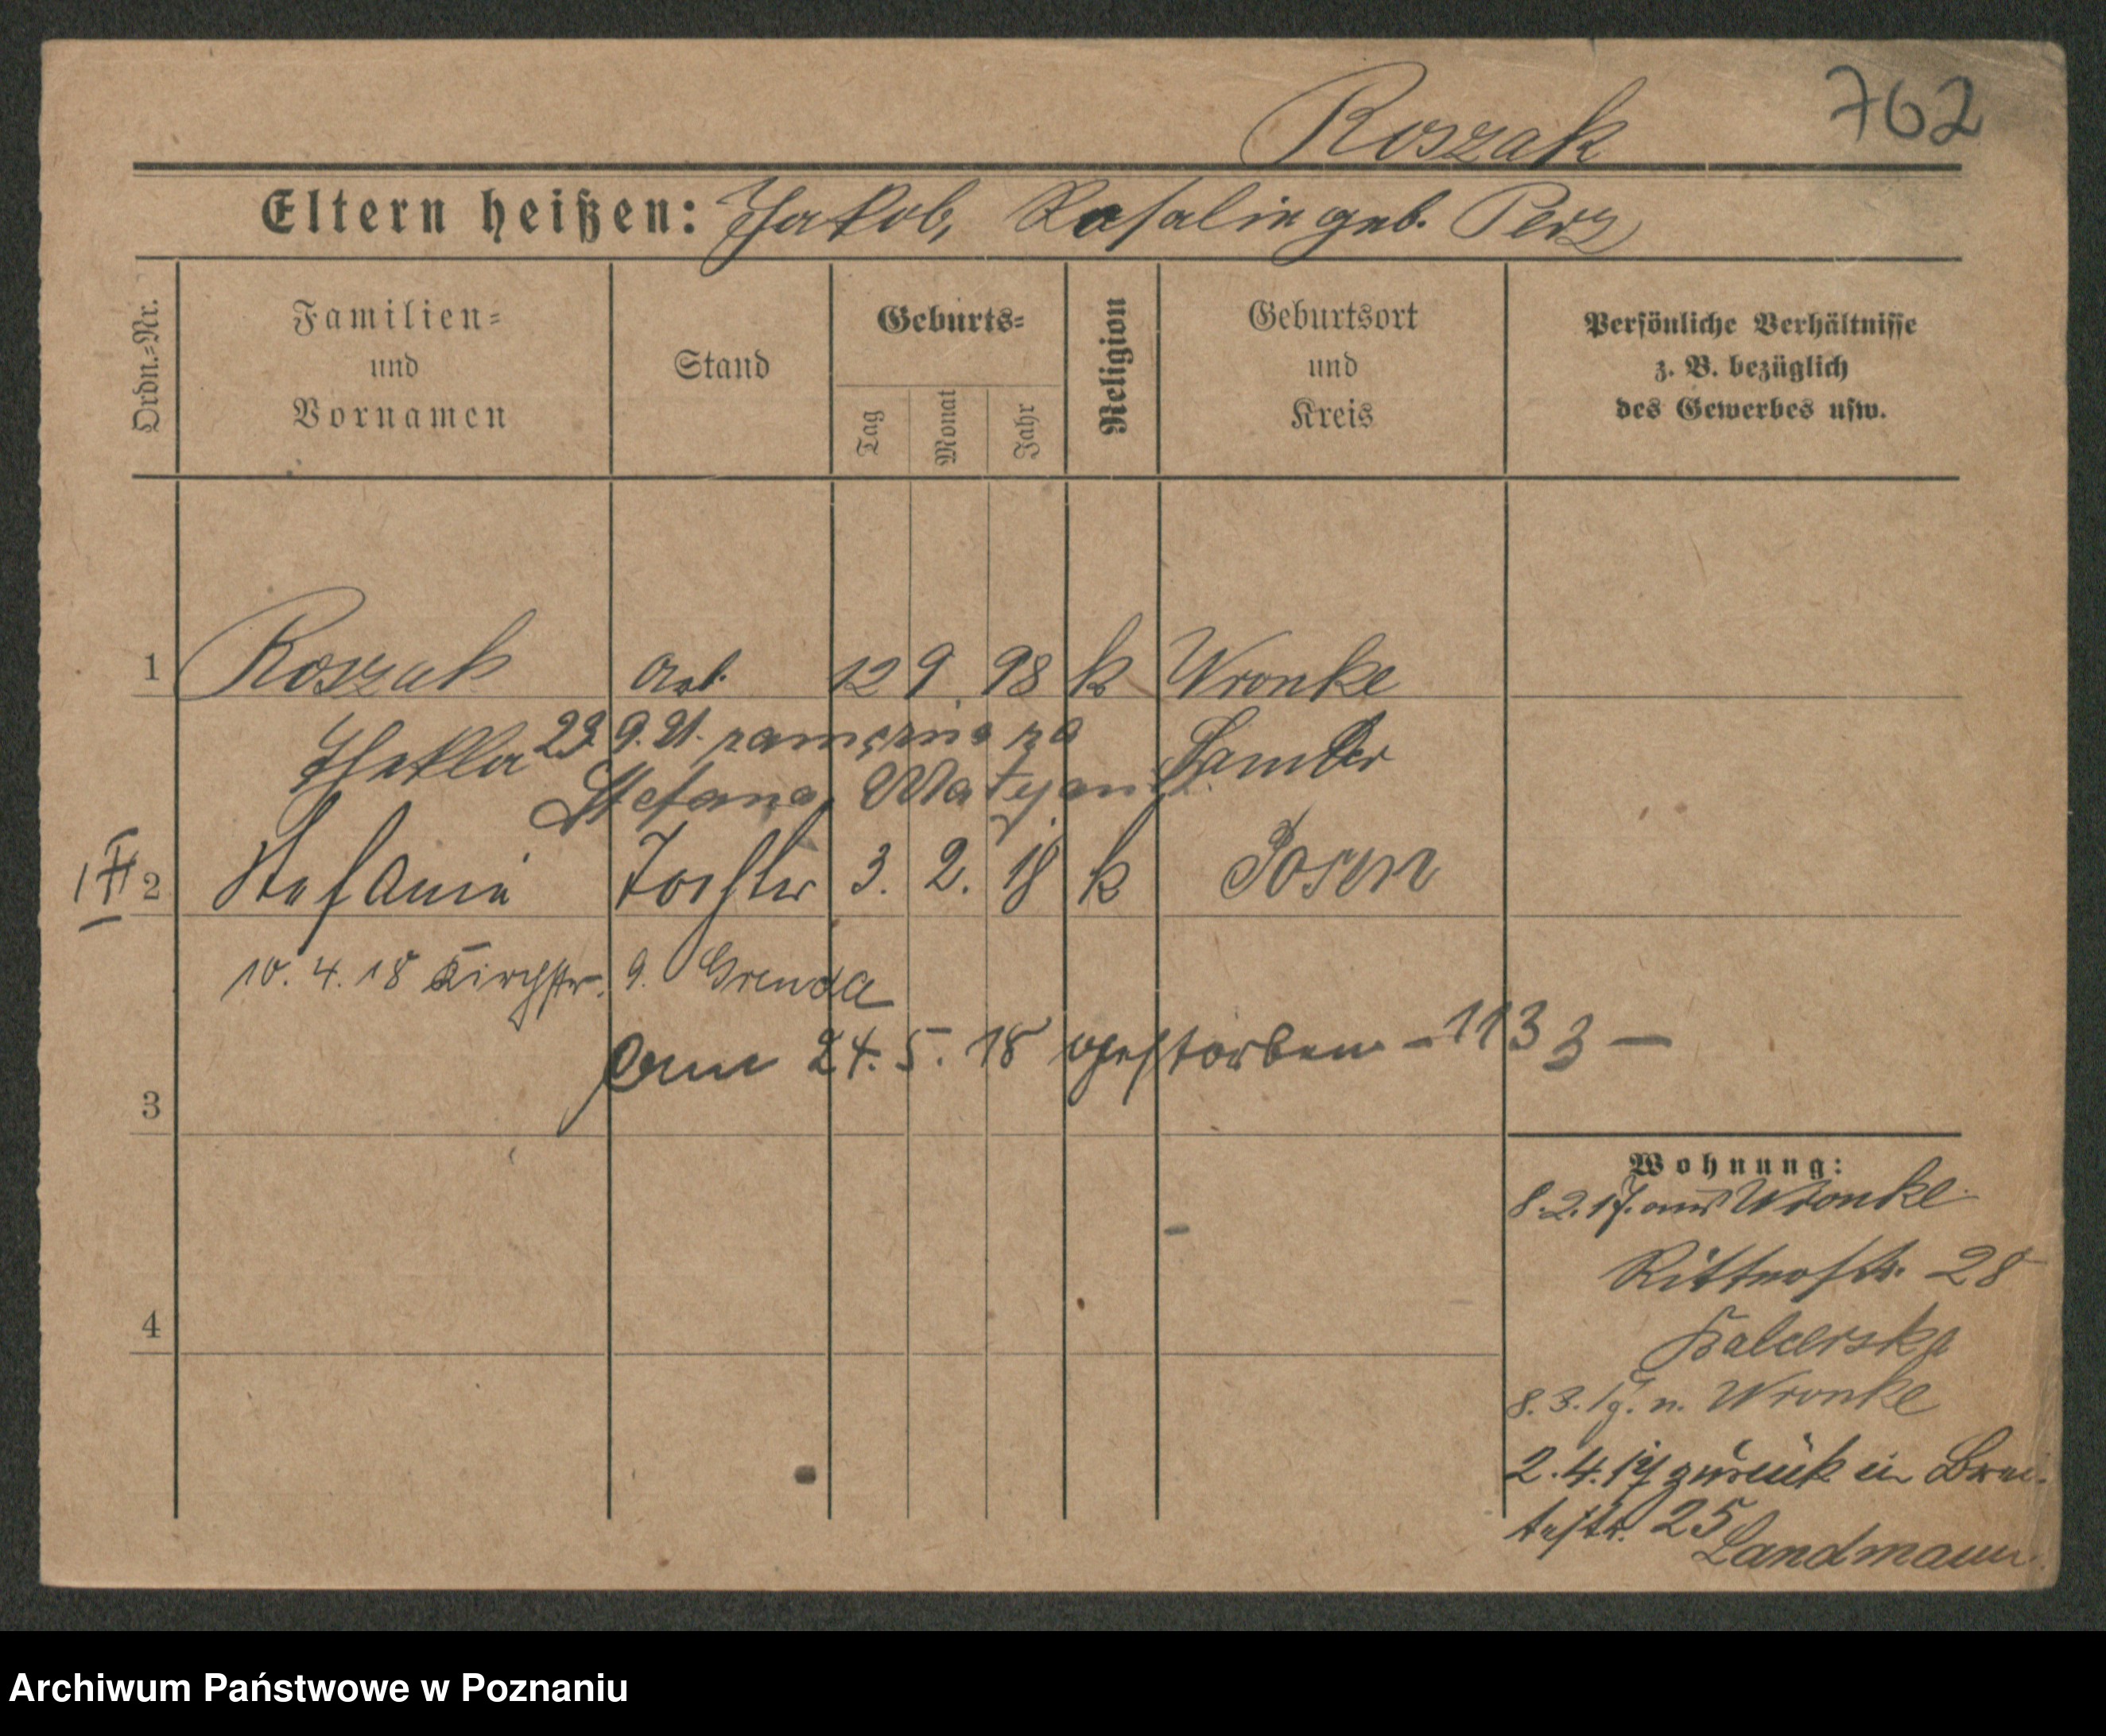 762
Roszak
Eltern heißen: Jakob, Rosalie geb. Perz
Ordn.=Nr.
Familien=
und
Vornamen
Stand
Geburts=
Tag
Monat
Jahr
Religion
Geburtsort
und
Kreis
Persönliche Verhältnisse
z. B. bezüglich
des Gewerbes usw.
1 Roszak Arb. 12 9. 98 k Wronke
Thekla 29. 9. 21. zamężna za Samter
Stefana Matyan
2 Stefanie Tochter 3. 2. 18 k Posen
10. 4. 18 Kirchstr. 9. Grenda
am 24. 5. 18 gestorben - 1133 -
3
4
Wohnung:
8. 2. 17. aus Wronke
Ritterstr. 28
8. 3. 17. n. Wronke
2. 4. 17 zurück in Brei-
testr. 25
Landmann
Archiwum Państwowe w Poznaniu